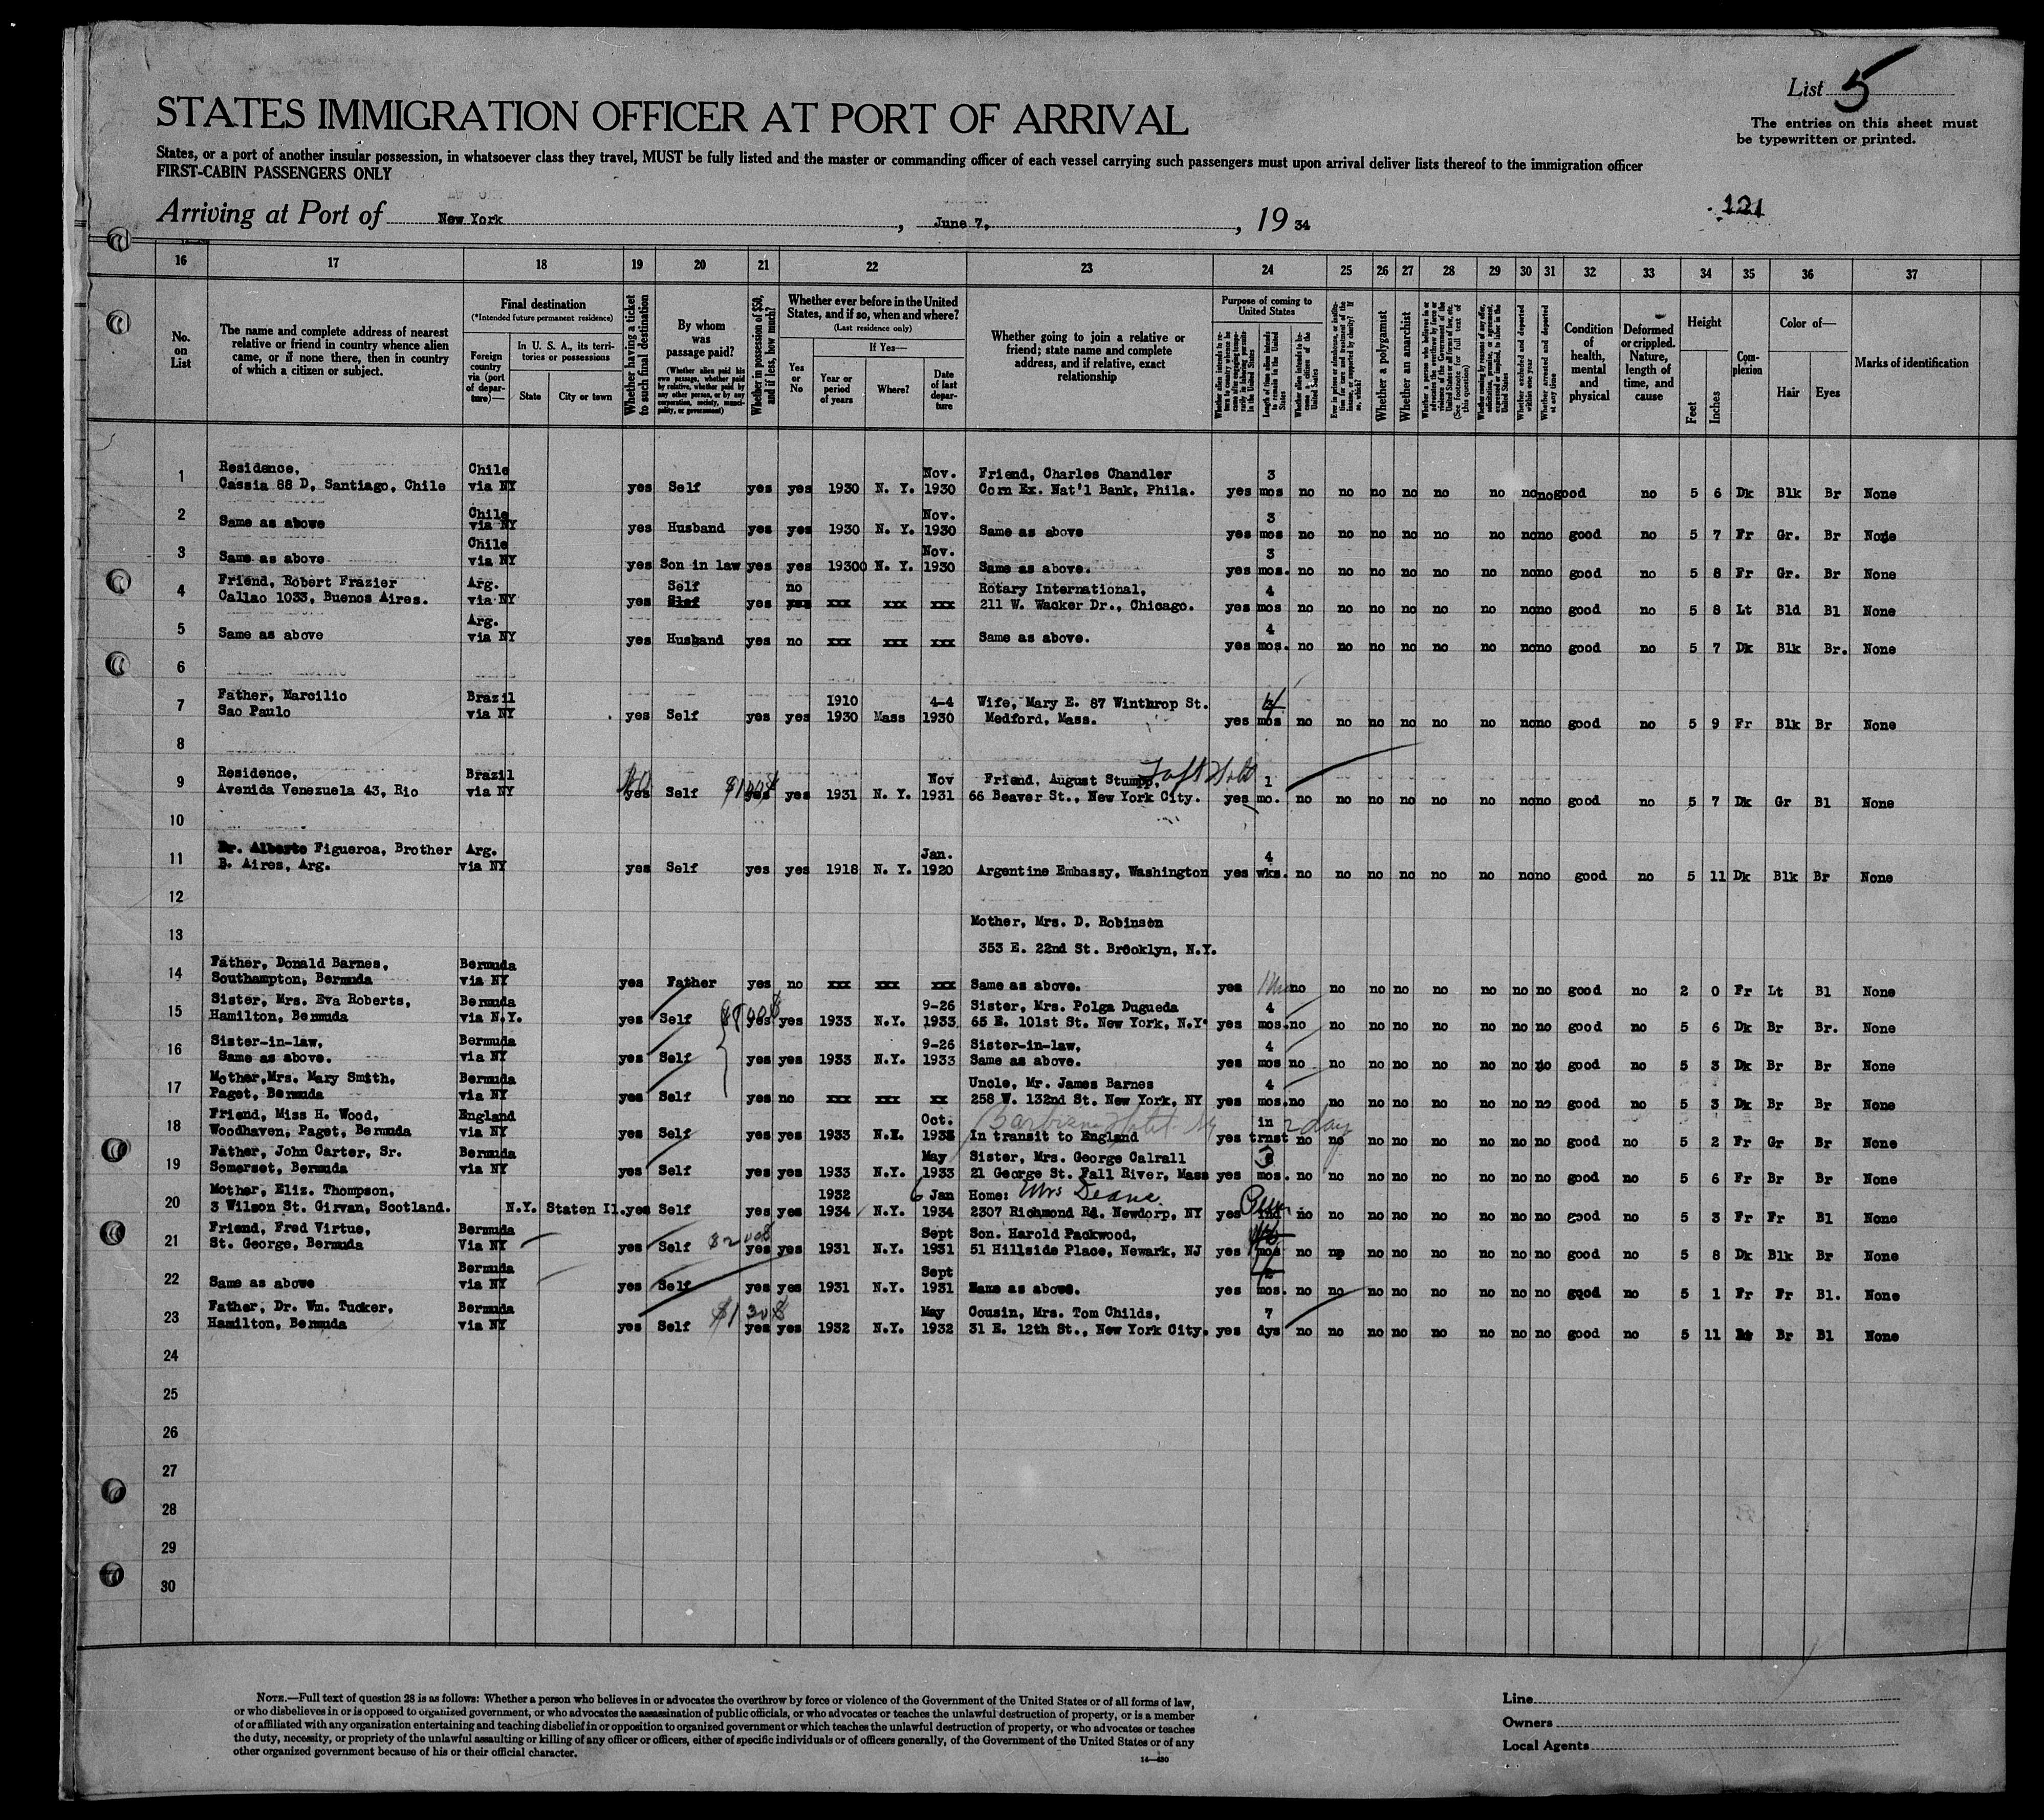 List 5
The entries on this sheet must
be typewritten or printed.
STATES IMMIGRATION OFFICER AT PORT OF ARRIVAL
States, or a port of another insular possession, in whatsoever class they travel, MUST be fully listed and the master or commanding officer of each vessel carrying such passengers must upon arrival deliver lists thereof to the immigration officer
FIRST-CABIN PASSENGERS ONLY
Arriving at Port of New York, June 7, 1934
121
16 17 18 19 20 21 22 23 24 25 26 27 28 29 30 31 32 33 34 35 36 37
No. on List
The name and complete address of nearest
relative or friend in country whence alien
came, or if none there, then in country
of which a citizen or subject.
Final destination
(*Intended future permanent residence)
Foreign country via (port of departure)—
In U. S. A., its territories or possessions
State
City or town
Whether having a ticket to such final destination
By whom was passage paid?
(Whether alien paid his own passage, whether paid by relative, whether paid by any other person, or by any corporation, society, municipality, or government)
Whether in possession of $50, and if less, how much?
Whether ever before in the United
States, and if so, when and where?
(Last residence only)
Yes or No
If Yes—
Year or period of years
Where?
Date of last departure
Whether going to join a relative or
friend; state name and complete
address, and if relative, exact
relationship
Purpose of coming to United States
Length of time alien intends to remain in the United States
Whether alien intends to become a citizen of the United States
Whether a polygamist
Whether an anarchist
Whether excluded and deported within one year
Whether arrested and deported at any time
Condition of health, mental and physical
Deformed or crippled. Nature, length of time, and cause
Height
Feet
Inches
Complexion
Color of—
Hair
Eyes
Marks of identification
1 Residence, Chile Nov. Friend, Charles Chandler 3
Cassia 88 D, Santiago, Chile via NY yes Self yes yes 1930 N. Y. 1930 Corn Ex. Nat'l Bank, Phila. yes mos no no no no no no no no good no 5 6 Dk Blk Br None
2 Chile Nov. 3
Same as above via NY yes Husband yes yes 1930 N. Y. 1930 Same as above yes mos no no no no no no no no good no 5 7 Fr Gr. Br None
3 Chile Nov. 3
Same as above via NY yes Son in law yes yes 19300 N. Y. 1930 Same as above. yes mos. no no no no no no no no good no 5 8 Fr Gr. Br None
4 Friend, Robert Frazier Arg. Self no Rotary International, 4
Callao 1033, Buenos Aires. via NY yes Slef yes yes xxx xxx xxx 211 W. Wacker Dr., Chicago. yes mos no no no no no no no no good no 5 8 Lt Bld Bl None
5 Arg. 4
Same as above via NY yes Husband yes no xxx xxx xxx Same as above. yes mos. no no no no no no no no good no 5 7 Dk Blk Br. None
6
7 Father, Marcilio Brazil 1910 4-4 Wife, Mary E. 87 Winthrop St.
Sao Paulo via NY yes Self yes yes 1930 Mass 1930 Medford, Mass. yes mos no no no no no no no no good no 5 9 Fr Blk Br None
8
9 Residence, Brazil Nov Friend, August Stumpp, Taft Hotel 1
Avenida Venezuela 43, Rio via NY yes Self yes yes 1931 N. Y. 1931 66 Beaver St., New York City. yes mo. no no no no no no no no good no 5 7 Dk Gr Bl None
10
11 Dr. Alberto Figueroa, Brother Arg. Jan. 4
B. Aires, Arg. via NY yes Self yes yes 1918 N. Y. 1920 Argentine Embassy, Washington yes wks. no no no no no no no no good no 5 11 Dk Blk Br None
12
13 Mother, Mrs. D. Robinson
353 E. 22nd St. Brooklyn, N.Y.
14 Father, Donald Barnes, Bermuda
Southampton, Bermuda via NY yes Father yes no xxx xxx xxx Same as above. yes no no no no no no no no good no 2 0 Fr Lt Bl None
15 Sister, Mrs. Eva Roberts, Bermuda 9-26 Sister, Mrs. Polga Dugueda 4
Hamilton, Bermuda via N.Y. yes Self yes yes 1933 N.Y. 1933 65 E. 101st St. New York, N.Y. yes mos. no no no no no no no no good no 5 6 Dk Br Br. None
16 Sister-in-law, Bermuda 9-26 Sister-in-law, 4
Same as above. via NY yes Self yes yes 1933 N.Y. 1933 Same as above. yes mos no no no no no no no no good no 5 3 Dk Br Br None
17 Mother, Mrs. Mary Smith, Bermuda Uncle, Mr. James Barnes 4
Paget, Bermuda via NY yes Self yes no xxx xxx xx 258 W. 132nd St. New York, NY yes mos. no no no no no no no no good no 5 3 Dk Br Br None
18 Friend, Miss H. Wood, England Oct. in 2 day
Woodhaven, Paget, Bermuda via NY yes Self yes yes 1933 In transit to England yes trnst no no no no no no no no good no 5 2 Fr Gr Br None
19 Father, John Carter, Sr. Bermuda May Sister, Mrs. George Calrall 3
Somerset, Bermuda via NY yes Self yes yes 1933 N.Y. 1933 21 George St. Fall River, Mass yes mos. no no no no no no no no good no 5 6 Fr Br Br None
20 Mother, Eliz. Thompson, 1932 6 Jan Home: Mrs Deane
3 Wilson St. Girvan, Scotland. N.Y. Staten Il. yes Self yes yes 1934 N.Y. 1934 2307 Richmond Rd. Newdorp, NY yes ind no no no no no no no no good no 5 3 Fr Fr Bl None
21 Friend, Fred Virtue, Bermuda Sept Son. Harold Packwood,
St. George, Bermuda Via NY yes Self yes yes 1931 N.Y. 1931 51 Hillside Place, Newark, NJ yes mos no no no no no no no no good no 5 8 Dk Blk Br None
22 Bermuda Sept
Same as above via NY yes Self yes yes 1931 N.Y. 1931 Same as above. yes mos. no no no no no no no no good no 5 1 Fr Fr Bl. None
23 Father, Dr. Wm. Tucker, Bermuda May Cousin, Mrs. Tom Childs, 7
Hamilton, Bermuda via NY yes Self yes yes 1932 N.Y. 1932 31 E. 12th St., New York City. yes dys no no no no no no no no good no 5 11 Br Bl None
24
25
26
27
28
29
30
NOTE.—Full text of question 28 is as follows: Whether a person who believes in or advocates the overthrow by force or violence of the Government of the United States or of all forms of law,
or who disbelieves in or is opposed to organized government, or who advocates the assassination of public officials, or who advocates or teaches the unlawful destruction of property, or is a member
of or affiliated with any organization entertaining and teaching disbelief in or opposition to organized government or which teaches the unlawful destruction of property, or who advocates or teaches
the duty, necessity, or propriety of the unlawful assaulting or killing of any officer or officers, either of specific individuals or of officers generally, of the Government of the United States or of any
other organized government because of his or their official character.
Line
Owners
Local Agents